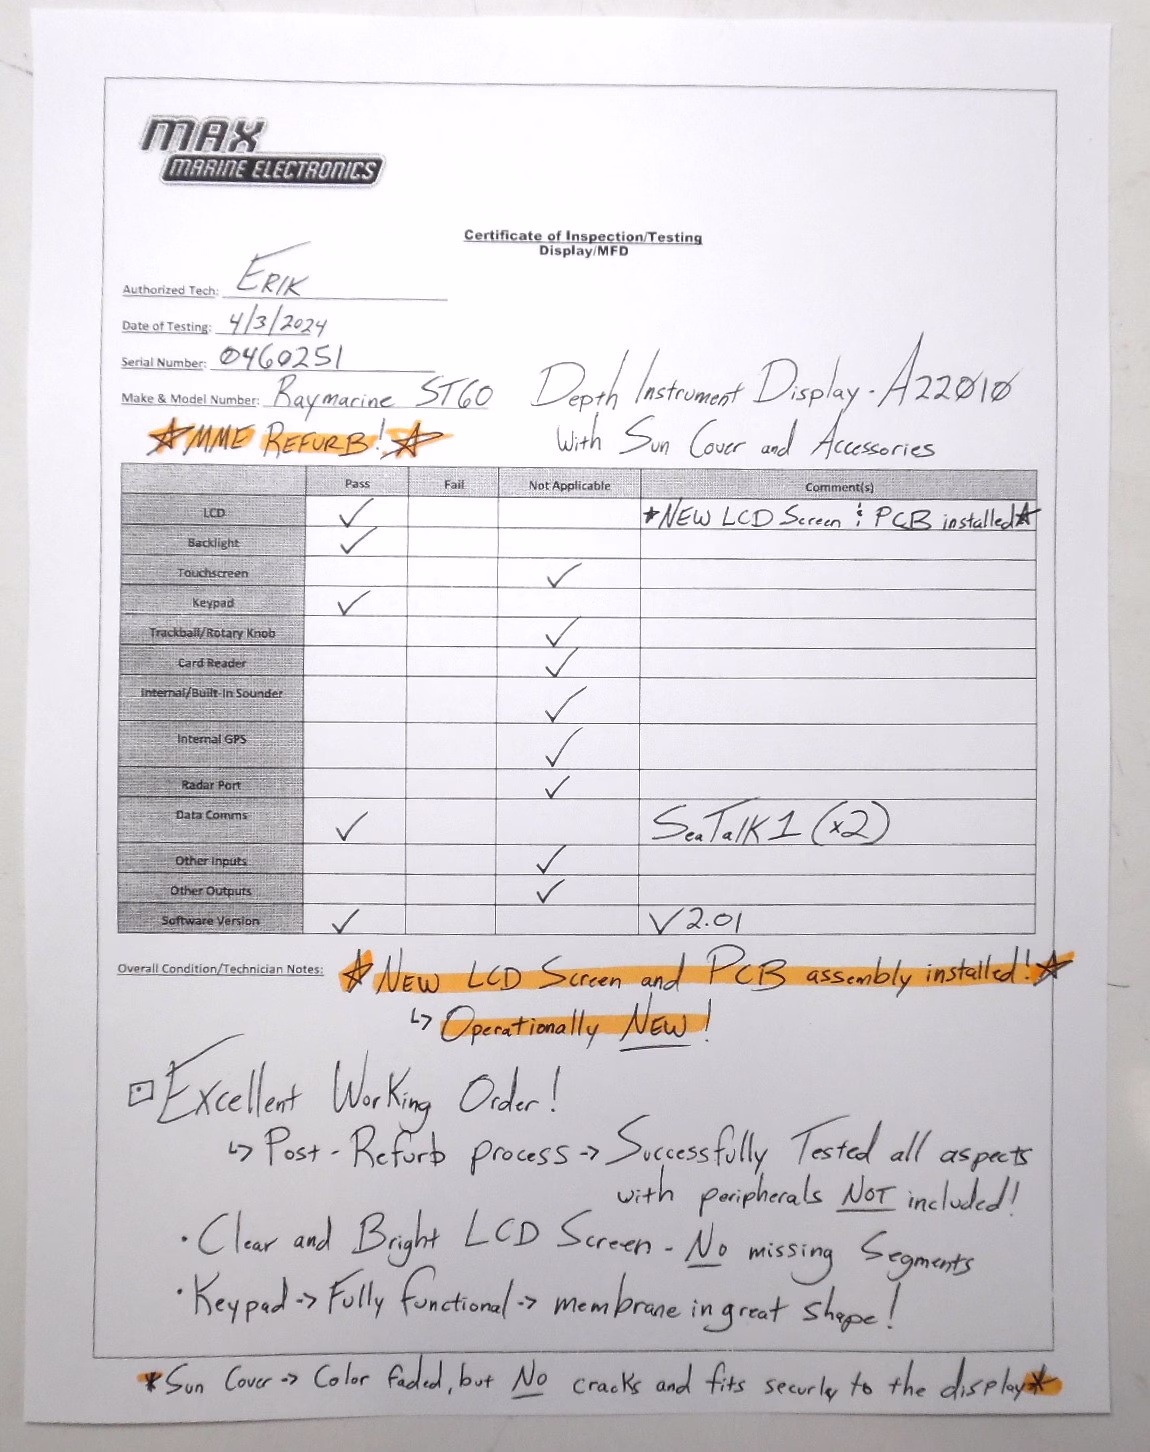 MAX
MARINE ELECTRONICS
Certificate of Inspection/Testing
Display/MFD
Authorized Tech: ERIK
Date of Testing: 4/3/2024
Serial Number: 0460251
Make & Model Number: Raymarine ST60 Depth Instrument Display - A22010
☆ MME REFURB! ☆ With Sun Cover and Accessories
Pass Fail Not Applicable Comment(s)
LCD ✓ ★NEW LCD Screen & PCB installed★
Backlight ✓
Touchscreen ✓
Keypad ✓
Trackball/Rotary Knob ✓
Card Reader ✓
Internal/Built-In Sounder ✓
Internal GPS ✓
Radar Port ✓
Data Comms ✓ SeaTalk 1 (x2)
Other Inputs ✓
Other Outputs ✓
Software Version ✓ V 2.01
Overall Condition/Technician Notes: ☆ NEW LCD Screen and PCB assembly installed! ☆
↳ Operationally NEW!
⊡ Excellent Working Order!
↳ Post-Refurb process → Successfully Tested all aspects
with peripherals NOT included!
• Clear and Bright LCD Screen - No missing Segments
• Keypad → Fully functional → membrane in great shape!
*Sun Cover → Color faded, but NO cracks and fits securly to the display*